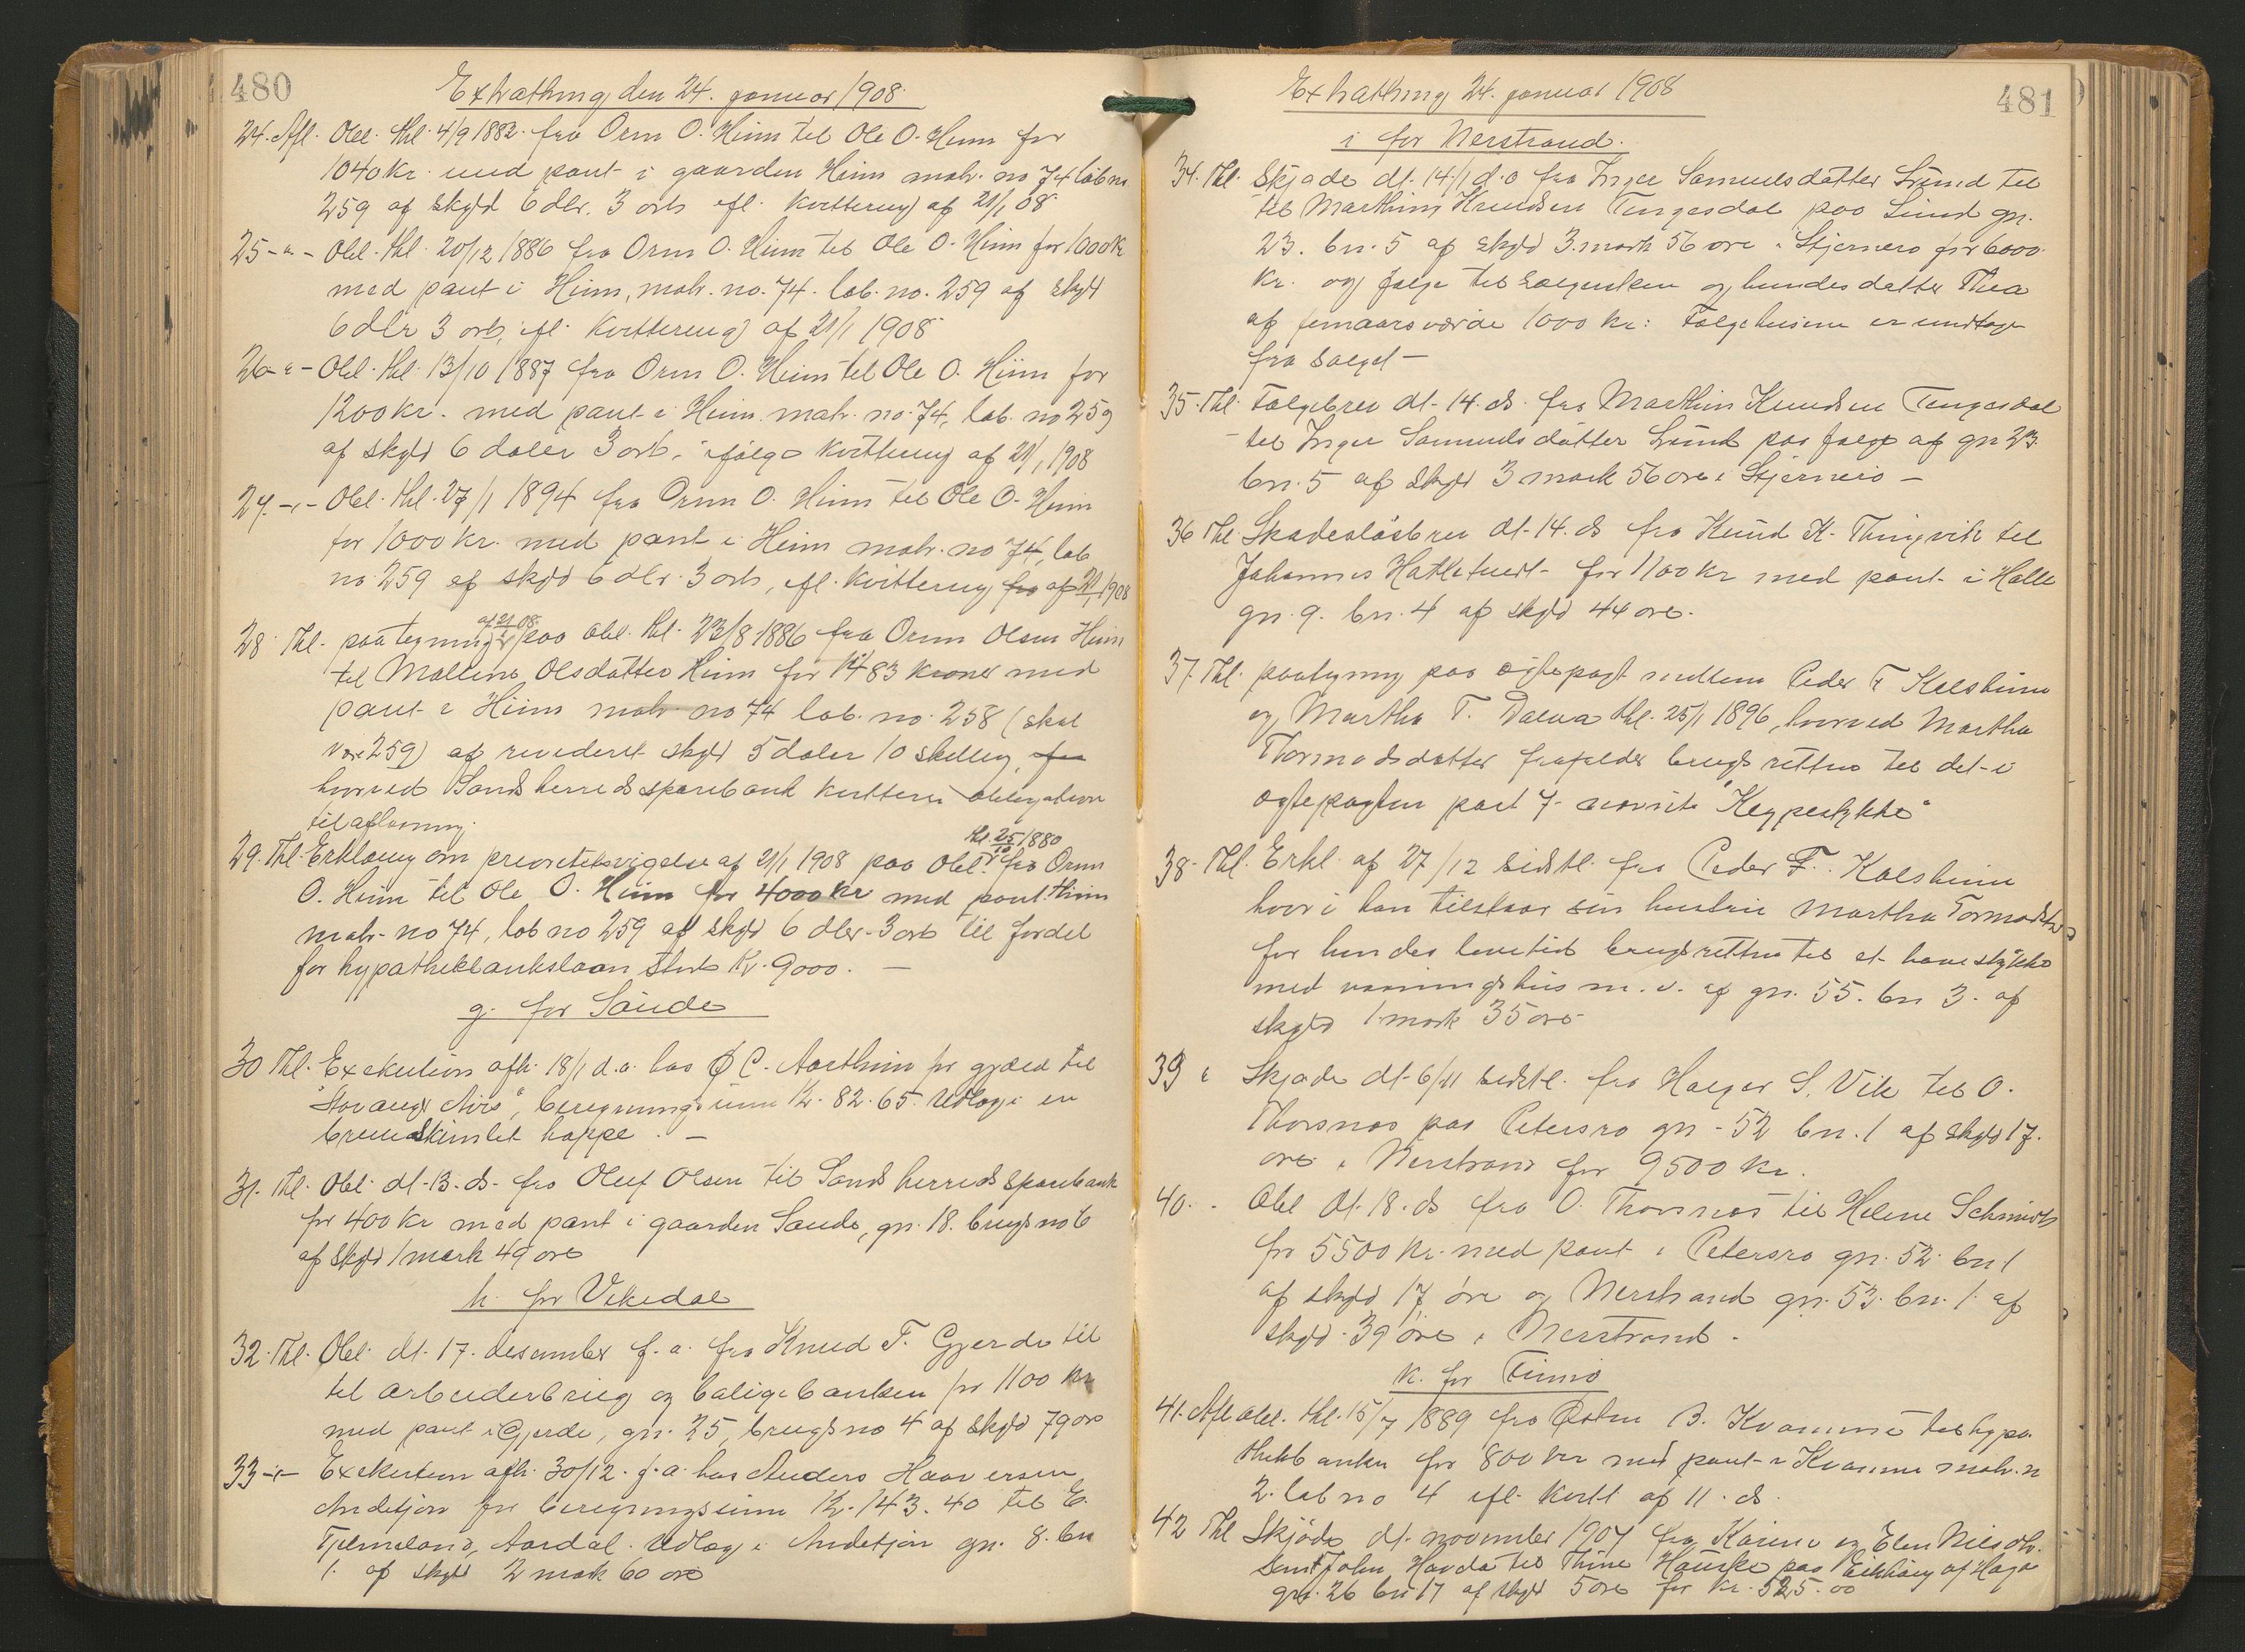 480
Extrathing den 24. januar 1908.
24. Afl. Obl. thl. 4/9 1882. fra Orm O. Heim til Ole O. Heim for
1040 kr. med pant i gaarden Heim matr. no 74 løb no
259 af skyld 6 dlr. 3 ort ifl. kvittering af 21/1 08.
25 -"- Obl. thl. 20/12 1886 fra Orm O. Heim til Ole O. Heim for 1000 kr
med pant i Heim, matr. no. 74. løb. no. 259 af skyld
6 dlr 3 ort, ifl. kvittering af 21/1 1908
26 -"- Obl. thl. 13/10 1887 fra Orm O. Heim til Ole O. Heim for
1200 kr. med pant i Heim matr. no. 74, løb. no 259
af skyld 6 daler 3 ort, ifølge kvittering af 21/1 1908
27. -"- Obl. thl. 27/1 1894 fra Orm O. Heim til Ole O. Heim
for 1000 kr. med pant i Heim matr. no 74, løb
no 259 af skyld 6 dlr. 3 ort, ifl. kvittering fra af 21/1 1908
28 Thl. paategning af 21/1 08 paa obl. thl. 23/8 1886 fra Orm Olsen Heim
til Malline Olsdatter Heim for 1483 kroner med
pant i Heim matr. no 74 løb. no. 258 (skal
være 259) af revideret skyld 5 daler 10 skilling,
hvorved Sands herreds sparebank kvitterer obligationen
til aflæsning.
29. Thl. Erklæring om prioritetsvigelse af 21/1 1908 paa Obl. thl. 25/10 1880 fra Orm
O. Heim til Ole O. Heim for 4000 kr med pant i Heim
matr. no 74, løb no 259 af skyld 6 dlr. 3 ort til fordel
for hypothekbankslaan stort Kr. 9000. —
g. for Saude
30 Thl. Exekution afh. 18/1 d.a. hos Ø C. Aartheim for gjæld til
"Stavanger Avis", beregningssum Kr. 82.65. Udlæg i en
brunskimlet hoppe. —
31. Thl. Obl. dt. 13. ds. fra Oluf Olsen til Sands herreds sparebank
for 400 kr med pant i gaarden Saude, gn. 18. brugs no 6
af skyld 1 mark 49 øre
h. for Vikedal
32. Thl. Obl. dt. 17. desember f. a. fra Knud T. Gjerde til
til arbeiderbrug og boligbanken for 1100 kr
med pant i Gjerde, gn. 25, brugs no 4 af skyld 79 øre
33 -"- Exekution afh. 30/12. f. a. hos Anders Haaversen
Andstjøn for beregningssum Kr. 143. 40 til E.
Tjelmeland, Aardal. Udlæg i Andstjøn gn. 8. bn
1. af skyld 2 mark 60 øre
481
Extrathing 24. januar 1908
i for Nerstrand.
34. Thl. Skjøde dt. 14/1 d. a fra Inger Samuelsdatter Lund til
til Marthin Knudsen Tengesdal paa Lund gn.
23. bn. 5 af skyld 3. mark 56 øre i Stjernerø for 6000.
kr. og følge til sælgersken og hendes datter Thea
af femaarsværdi 1000 kr: Følgehusene er undtagn
fra salget —
35. Thl. Følgebrev dt. 14. ds. fra Marthin Knudsen Tengesdal
til Inger Samuelsdatter Lund paa følge af gn 23.
bn. 5 af skyld 3 mark 56 øre i Stjernerø —
36 Thl Skadesløsbrev dt. 14. ds fra Knud K. Thingvik til
Johannes Hatletvedt for 1100 kr med pant i Halle
gn. 9. bn. 4 af skyld 44 øre.
37. Thl. paategning paa ægtepagt mellem Peder F Kolsheim
og Martha T. Dalva thl. 25/1 1896, hvorved Martha
Thormodsdatter frafalder brugsretten til det i
ægtepagten post 7. anviste "Kegpestykke"
38. Thl. Erkl. af 27/12 sidstl. fra Peder F. Kolsheim
hvori han tilstaar sin hustru Martha Tormodsdtr
for hendes levetid brugsretten til et havestykke
med vaaningshus m. v. af gn. 55. bn 3. af
skyld 1 mark 35 øre
39 " Skjøde dt. 6/11 sidstl. fra Holger S. Vik til O.
Thorsnes paa Petersro gn. 52 bn. 1 af skyld 17.
øre i Nerstrand for 9500 kr.
40. " Obl dt. 18. ds fra O. Thorsnes til Helene Schmidt
for 5500 kr. med pant i Petersro gn. 52. bn 1
af skyld 17 øre og Nerstrand gn. 53. bn. 1. af
skyld 39 øre i Nerstrand.
k. for Finnø
41. Afl obl. thl. 15/7 1889 fra Østen B. Kvamme til hypo-
thekbanken for 800 kr med pant i Kvamme matr. n
2. løb no 4 ifl. kvitt af 11. ds.
42 Thl Skjøde dt. november 1907 fra Karine og Elen Nilsdtr.
samt John Havda til Thine Hauske paa Eikhaug af Haga
gn. 26 bn 17 af skyld 5 øre for kr. 525.00